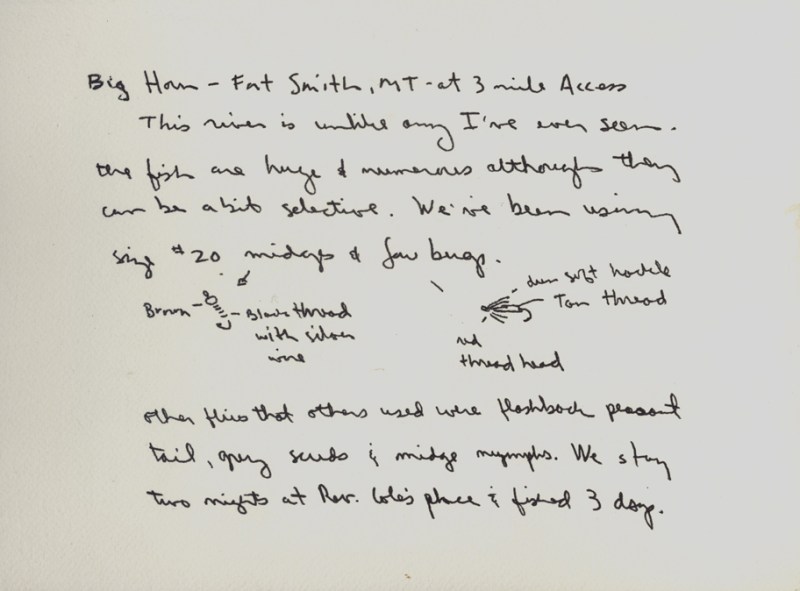 Big Horn - Fort Smith, MT - at 3 mile Access
This river is unlike any I've ever seen.
the fish are huge & numerous although they
can be a bit selective. We've been using
size #20 midges & few bugs.
dun soft hackle
Tan thread
Brown
Black thread
with silver
wire
red
thread head
other flies that others used were flashback peasant
tail, grey scuds & midge nymphs. We stay
two nights at Rev. Cole's place & fished 3 days.